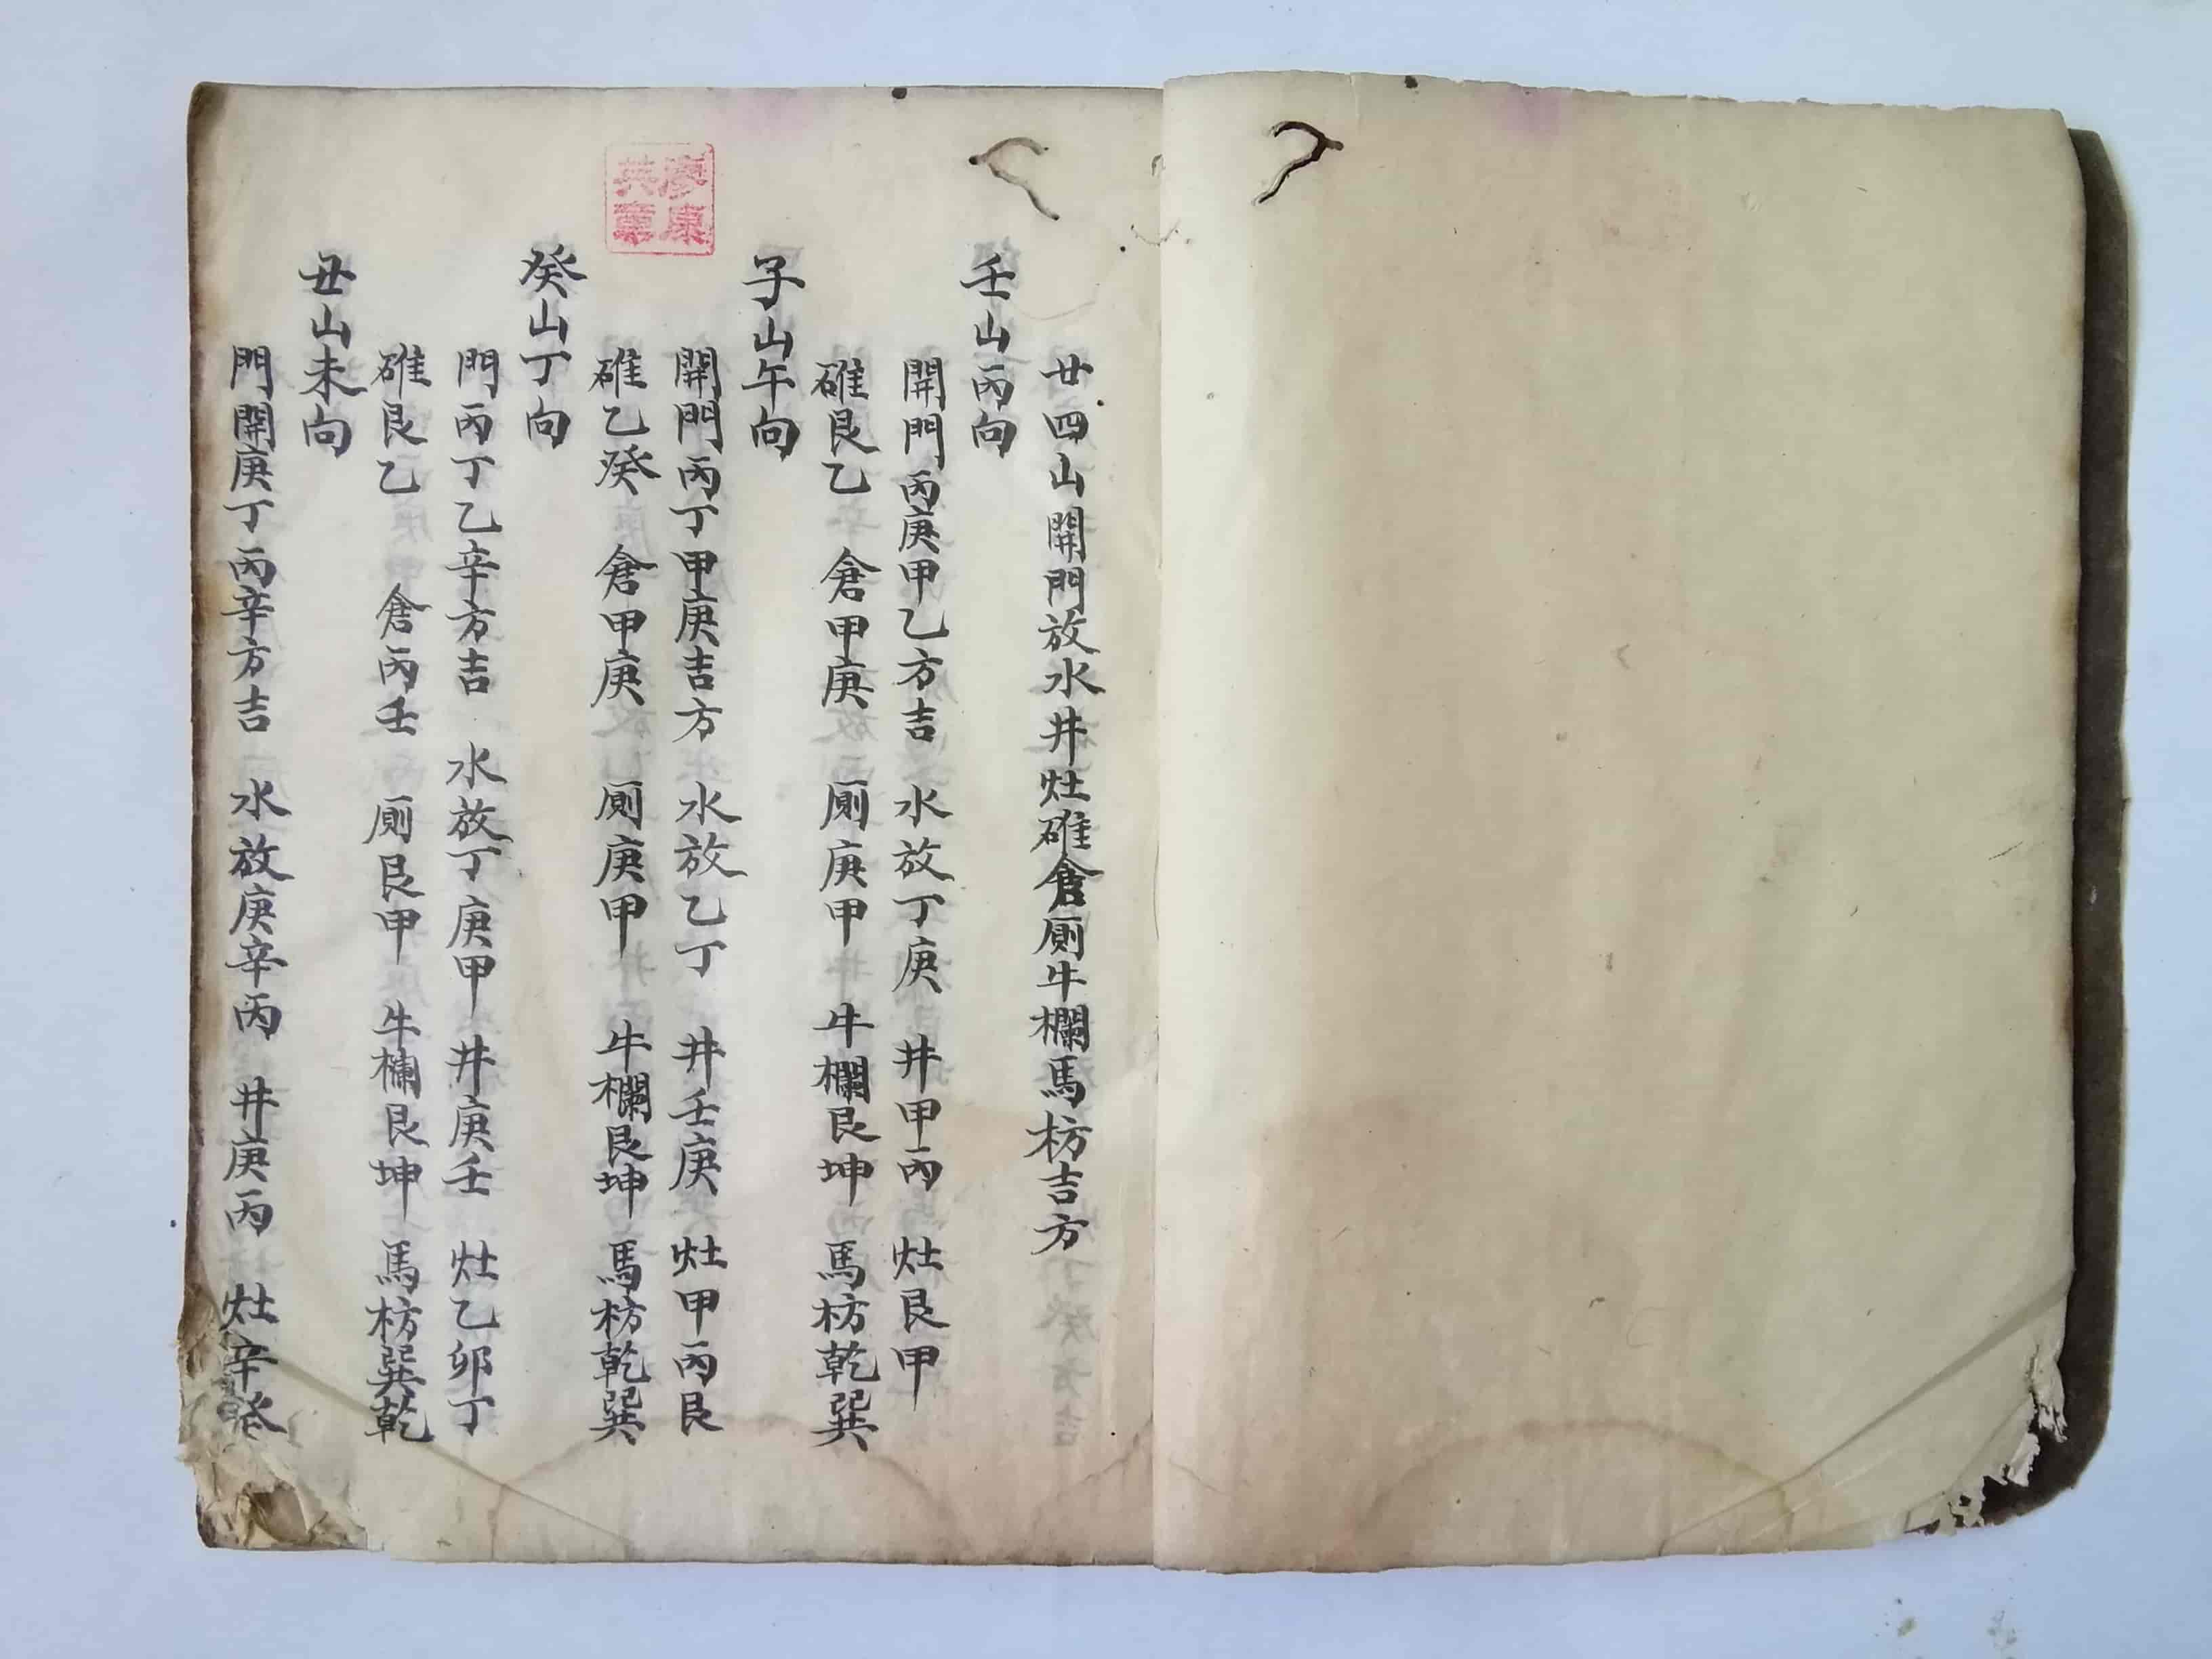 廿四山開門放水井灶碓倉厠牛欄馬枋吉方
壬山丙向
開門丙庚甲乙方吉 水放丁庚 井甲丙 灶艮甲
碓艮乙 倉甲庚 厠庚甲 牛欄艮坤 馬枋乾巽
子山午向
開門丙丁甲庚吉方 水放乙丁 井壬庚 灶甲丙艮
碓乙癸 倉甲庚 厠庚甲 牛欄艮坤 馬枋乾巽
癸山丁向
門丙丁乙辛方吉 水放丁庚甲 井庚壬 灶乙卯丁
碓艮乙 倉丙壬 厠艮甲 牛欄艮坤 馬枋巽乾
丑山未向
門開庚丁丙辛方吉 水放庚辛丙 井庚丙 灶辛癸